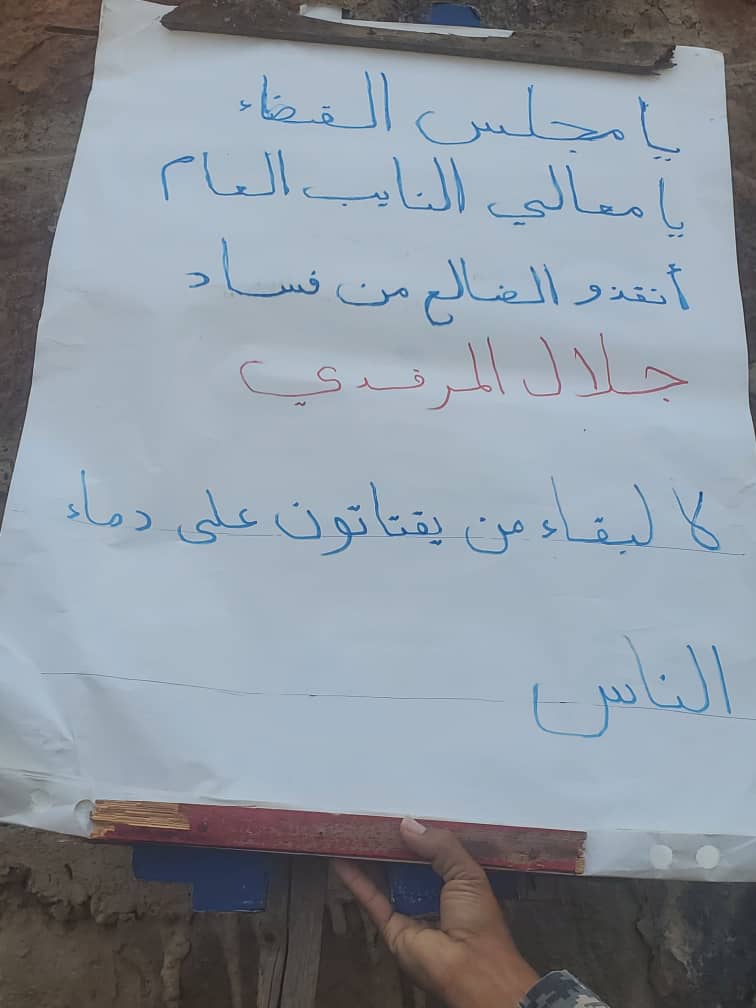 يا مجلس القضاء
يا معالي النايب العام
أنقذو الضالع من فساد
جلال المرفدي
لا لبقاء من يقتاتون على دماء
الناس